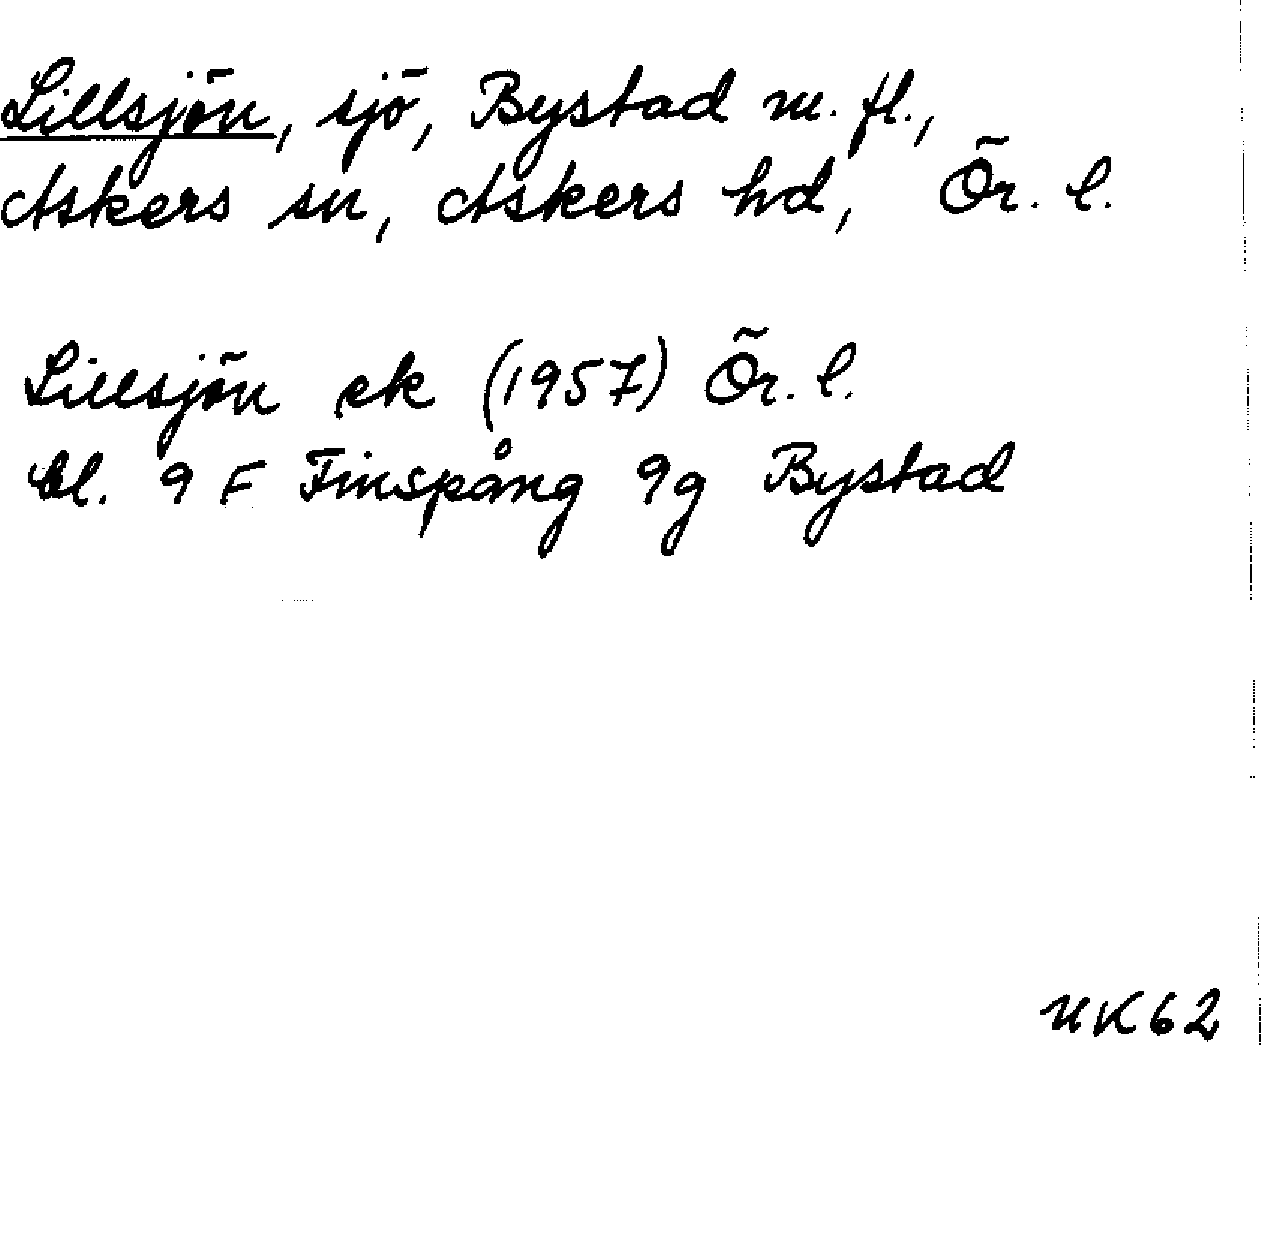 Lillsjön, sjö, Bystad m. fl.,
Askers sn, Askers hd, Ör. l.
Lillsjön ek (1957) Ör. l.
bl. 9 F Finspång 9g Bystad
UK62